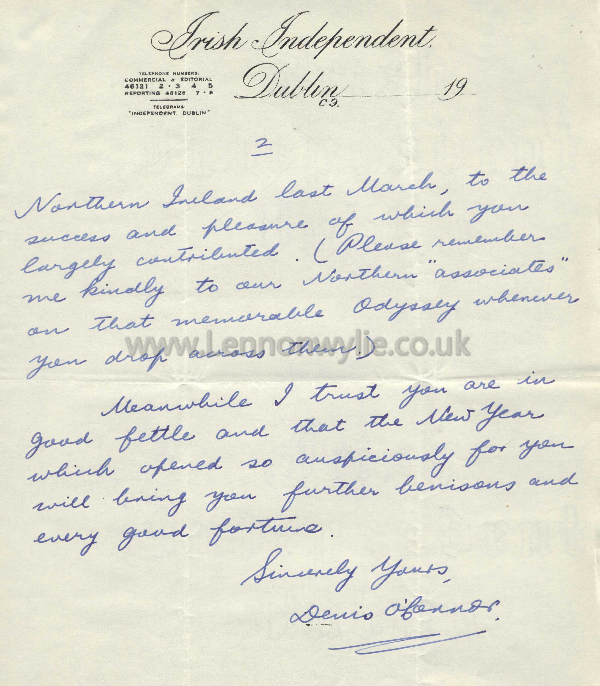 Irish Independent.
TELEPHONE NUMBERS:
COMMERCIAL & EDITORIAL
46121 2 · 3 4 5
REPORTING 46126 7 · 8
TELEGRAMS:
"INDEPENDENT, DUBLIN"
Dublin 19
C9.
2
Northern Ireland last March, to the
success and pleasure of which you
largely contributed. (Please remember
me kindly to our Northern "associates"
on that memorable Odyssey whenever
you drop across them.)
www.Lennonwylie.co.uk
Meanwhile I trust you are in
good fettle and that the New Year
which opened so auspiciously for you
will bring you further benisons and
every good fortune.
Sincerely Yours,
Denis O'Connor.